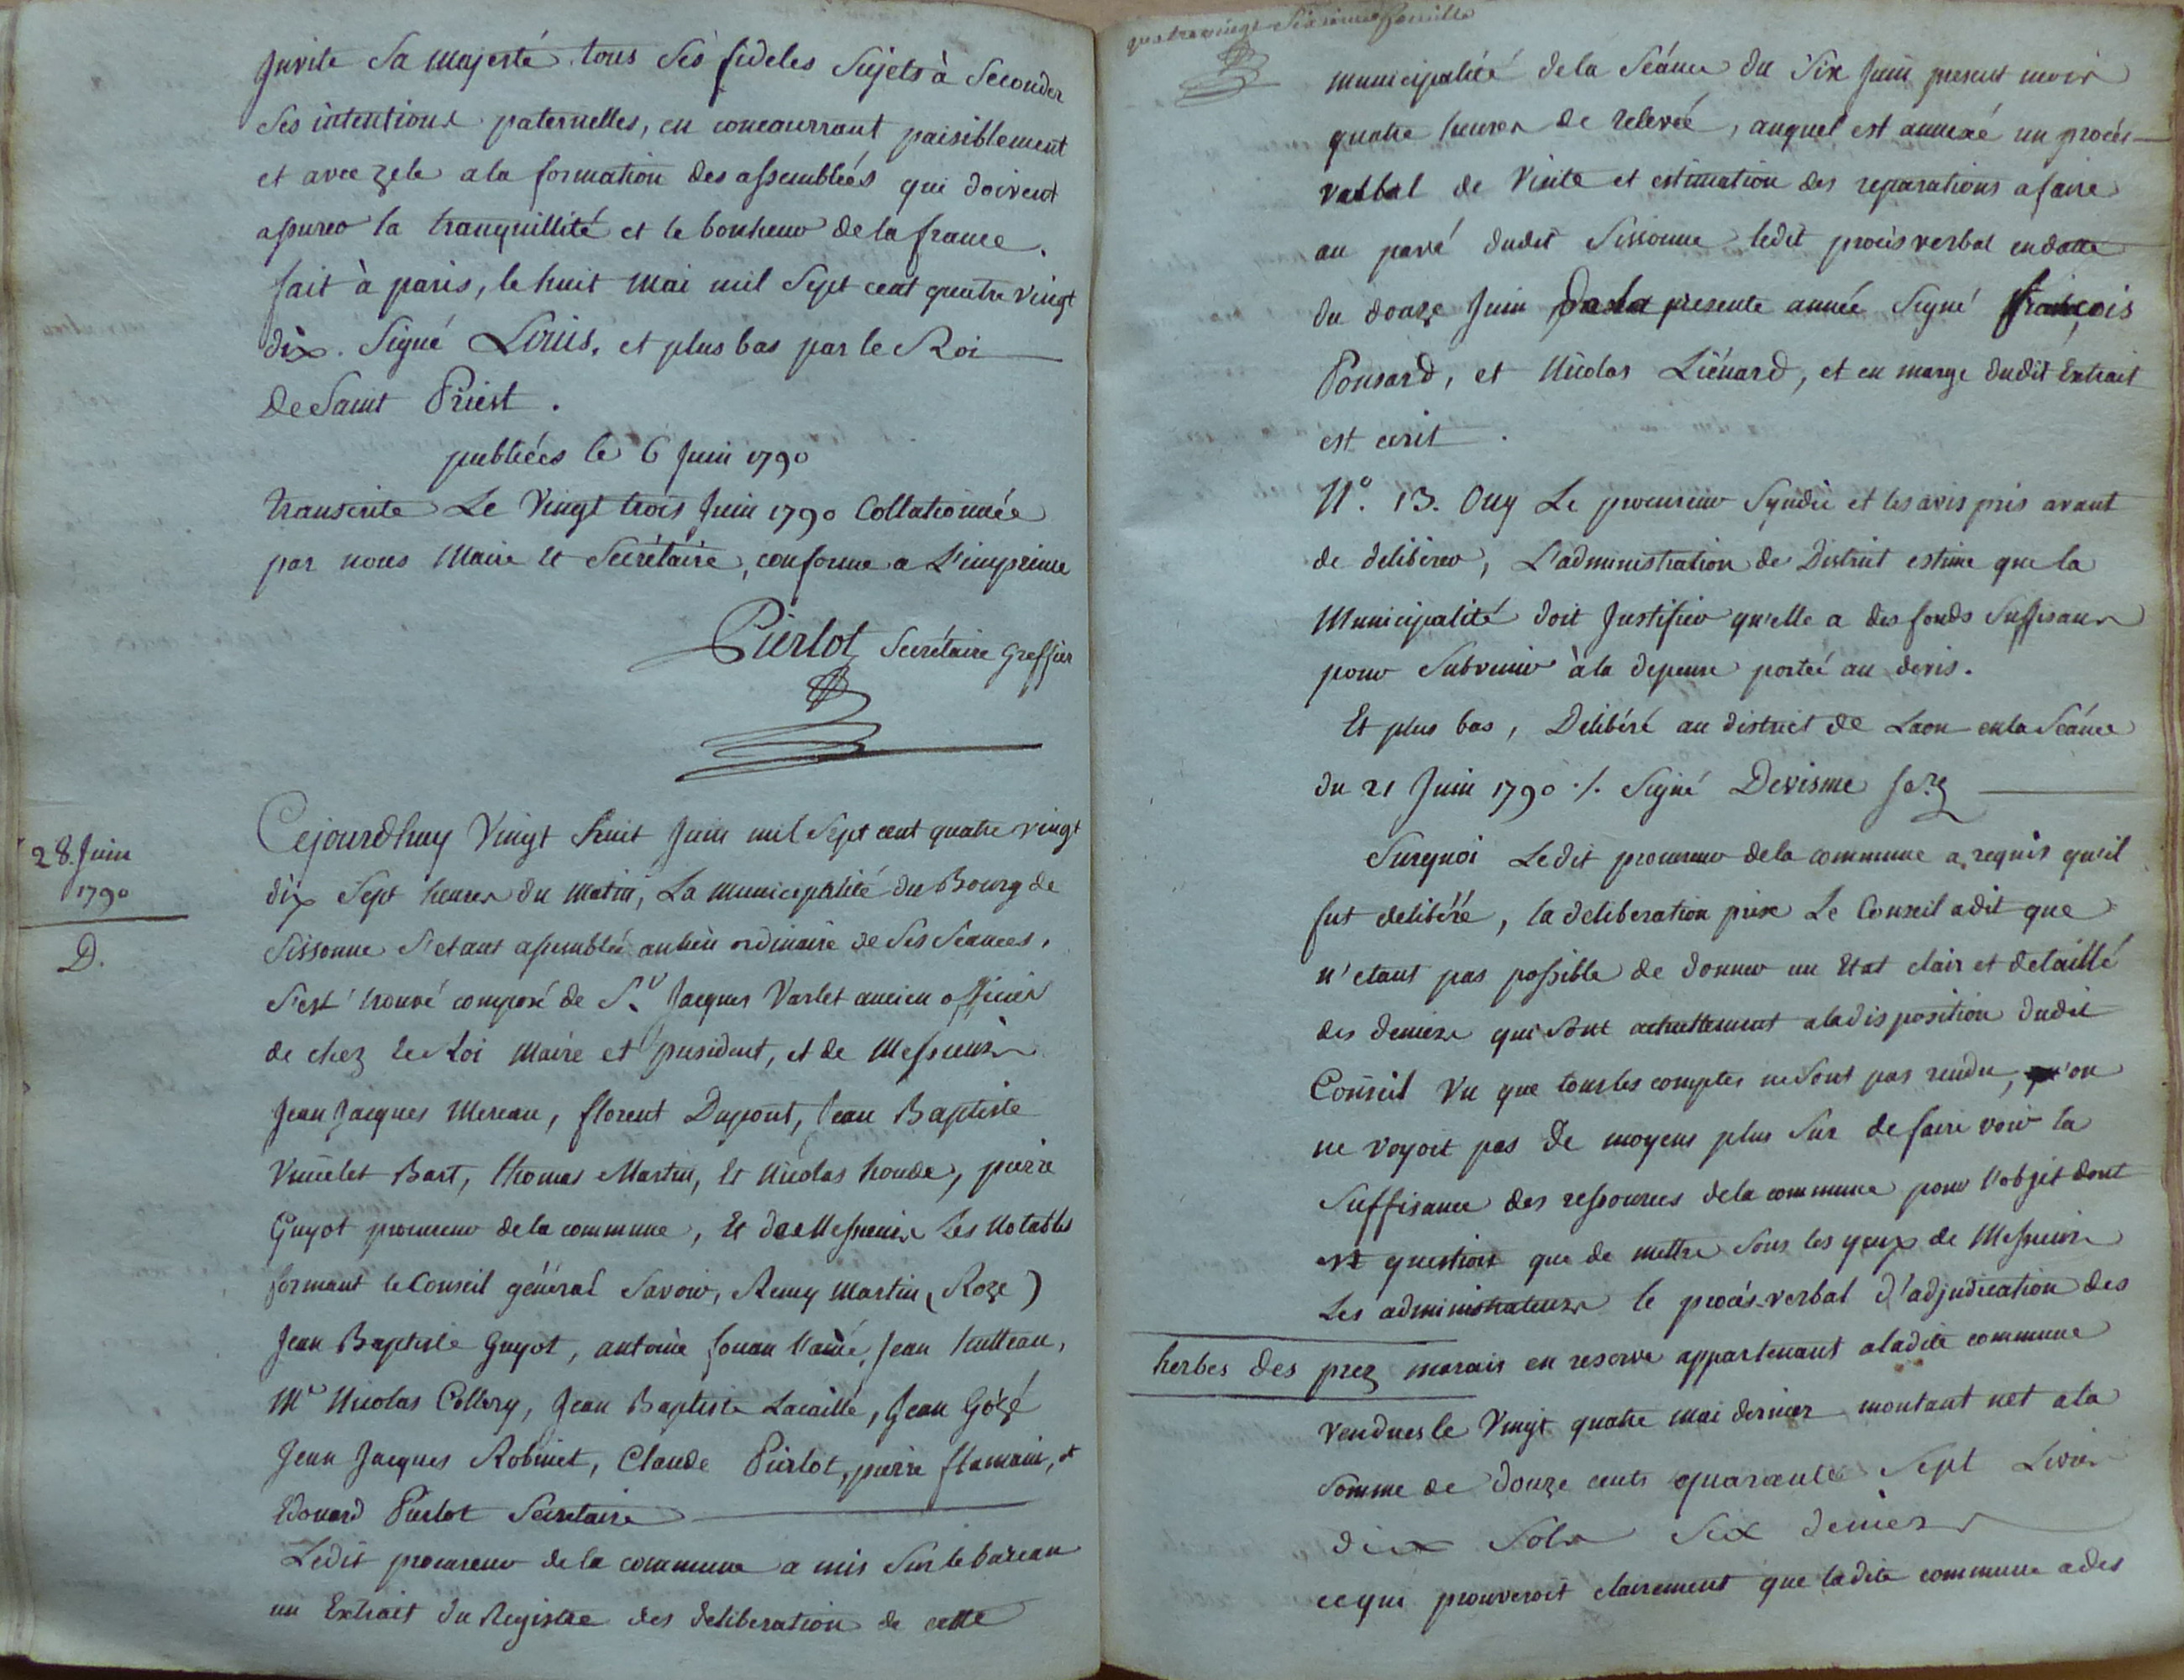 Invite Sa Majesté tous ses fideles Sujets à Seconder
Ses intentions paternelles, en concourrant paisiblement
et avec zele a la formation des assembleés qui doivent
assurer la tranquillité et le bonheur de la france.
fait à paris, le huit Mai mil Sept cent quatre vingt
dix. Signé Louis, et plus bas par le Roi
De Saint Priest.
publiées le 6 Juin 1790
transcrite Le Vingt trois Juin 1790 Collationnée
par nous Maire et Secrétaire, conforme a L'imprime
Pierlot Secrétaire Greffier
28. Juin
1790
D.
Cejourdhuy Vingt huit Juin mil Sept cent quatre vingt
dix Sept heures du matin, La municipalité du Bourg de
Sissonne S'etant assemblée au lieu ordinaire de Ses Séances,
S'est trouvé composé de Sr. Jacques Varlet ancien officier
de chez le Roi Maire et president, et de Messieurs
Jean Jacques Mereau, florent Dupont, Jean Baptiste
Vuielet Bart, thomas Martin, Et Nicolas houde, pierre
Guyot procureur de la commune, Et de Messieurs Les Notables
formant le Conseil général Savoir, Remy Martin (Roze)
Jean Baptiste Guyot, antoine fouan l'ainé, Jean hutteau,
Me Nicolas Collery, Jean Baptiste Lacaille, Jean Gózé
Jean Jacques Robinet, Claude Pierlot, pierre flamain, et
Edouard Pierlot Secretaire
Ledit procureur de la commune a mis Sur le bureau
un Extrait du Registre des deliberation de cette
quatre vingt Sixieme feuille
municipalité de la Séance du Six Juin present mois
quatre heures de releveé, auquel est annexé un procés
verbal de Visite et estimation des reparations a faire
au pavé dudit Sissonne ledit procés verbal en datte
du douze Juin de la presente année Signé françois
Ponsard, et Nicolas Liénard, et en marge dudit Extrait
est ecrit.
N°. 13. Ouy Le procureur Syndic et les avis pris avant
de deliberer, L'administration de District estime que la
Municipalité doit Justifier qu'elle a des fonds Suffisans
pour Subvenir à la depense porteé au devis.
Et plus bas, Délibéré au district de Laon en la Séance
du 21 Juin 1790 ./. Signé Devisme
Surquoi Ledit procureur de la commune a requis qu'il
fut delibéré, la deliberation prise Le Conseil a dit que
n'etant pas possible de donner un Etat clair et detaillé
des deniers qui Sont actuellement a la disposition dudit
Conseil Vu que tous les comptes ne Sont pas rendu, qu'on
ne voyoit pas de moyens plus Sur de faire voir la
Suffisance des ressources de la commune pour l'objet dont
est question que de mettre Sous les yeux de Messieurs
Les administrateurs le procés-verbal d'adjudication des
herbes des prez marais en reserve appartenant a ladite commune
Vendues le Vingt quatre mai dernier montant net a la
Somme de douze cents quarante Sept Livres
dix Sols Six deniers
ce qui prouveroit clairement que ladite commune a des